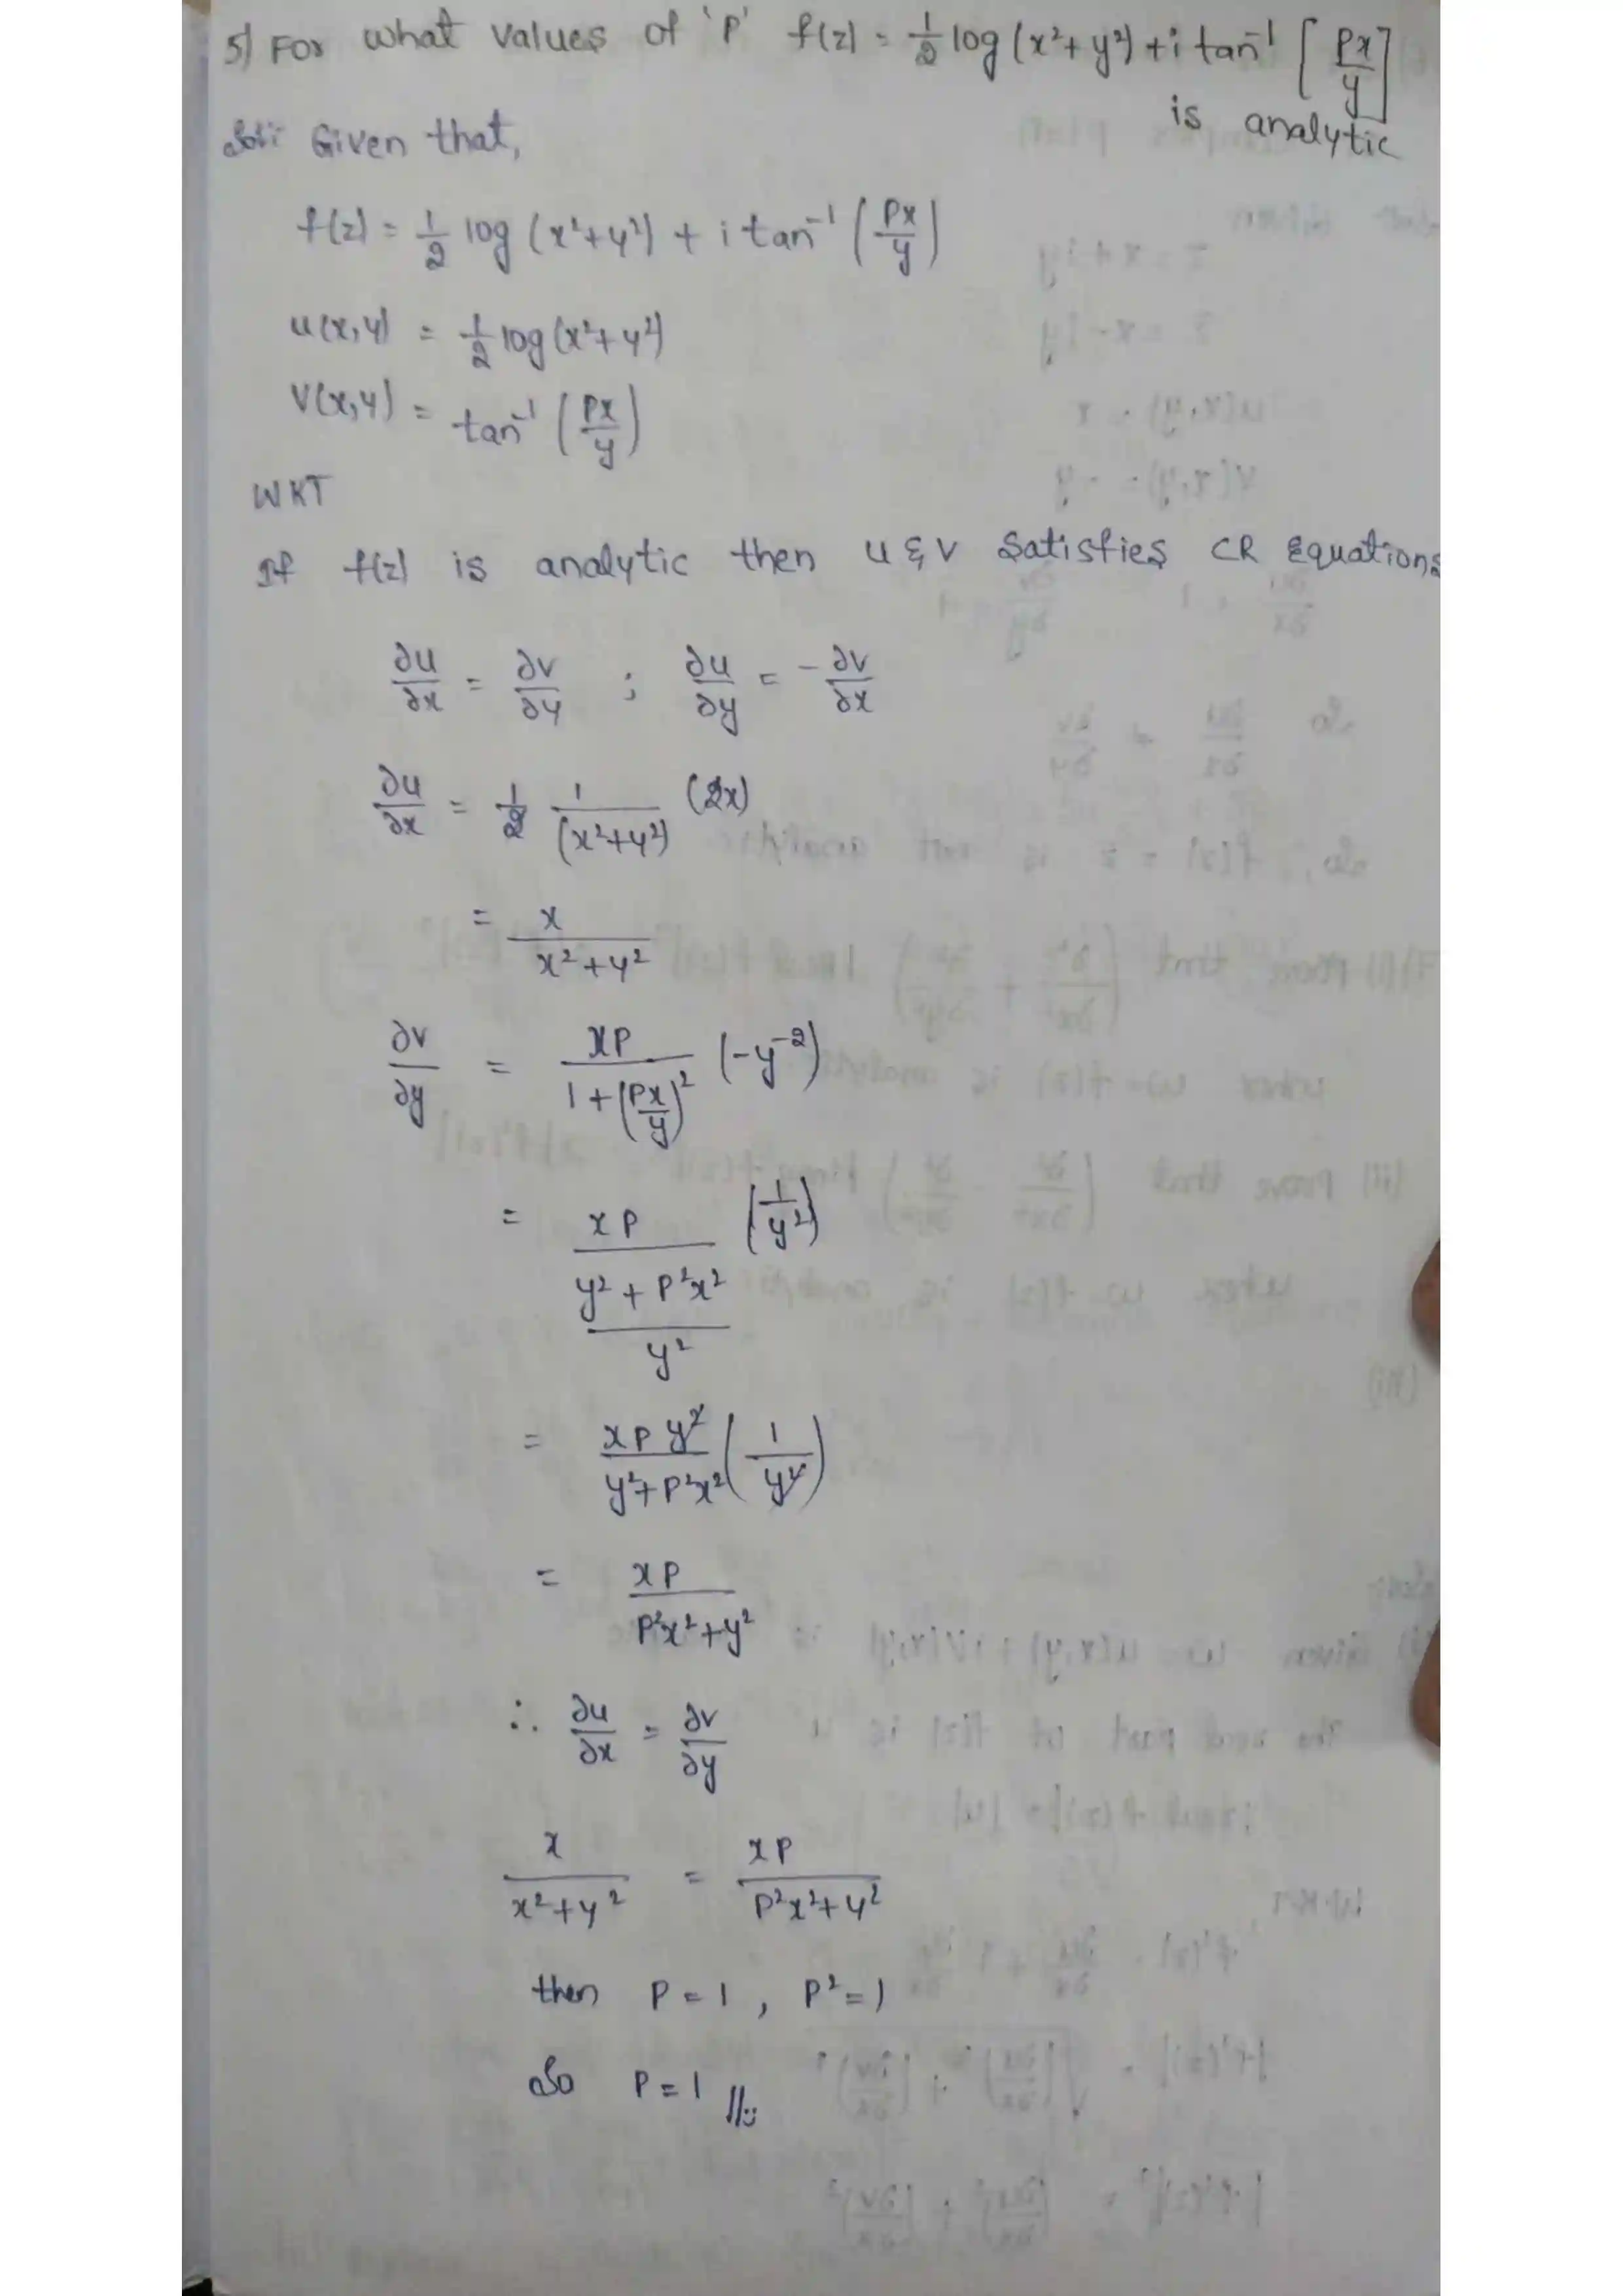 5) For what values of 'P' f(z) = 1/2 log (x²+y²) + i tan⁻¹ [Px/y]
is analytic
Sol: Given that,
f(z) = 1/2 log (x²+y²) + i tan⁻¹ (Px/y)
u(x,y) = 1/2 log (x²+y²)
V(x,y) = tan⁻¹ (Px/y)
WKT
If f(z) is analytic then u & v satisfies CR Equations
∂u/∂x = ∂v/∂y ; ∂u/∂y = - ∂v/∂x
∂u/∂x = 1/2 1/(x²+y²) (2x)
= x/(x²+y²)
∂v/∂y = xP/(1+(Px/y)²) (-y⁻²)
= xP/((y²+P²x²)/y²) (1/y²)
= xPy²/(y²+P²x²) (1/y²)
= xP/(P²x²+y²)
∴ ∂u/∂x = ∂v/∂y
x/(x²+y²) = xP/(P²x²+y²)
then P = 1, P² = 1
So P = 1 //